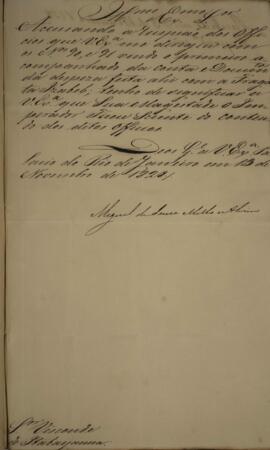 Illmo e Exmo Snr
Accusando a recepção dos Offi-
cios que V Exa me dirigio com
os Nos 90, e 91 sendo o primeiro a-
companhado da conta e Docum.tos
da despeza feita ahi com a Fraga-
ta Izabel, tenho de significar a
V Exa que Sua Magestade o Im-
perador ficou sciente do conteu-
do dos ditos officios.
Deos Ge a V. Exa Pa-
lacio do Rio de Janeiro em 13 de
Novembro de 1828/
Miguel de Souza Mello e Alvim
Snr Visconde
de Itabayanna.